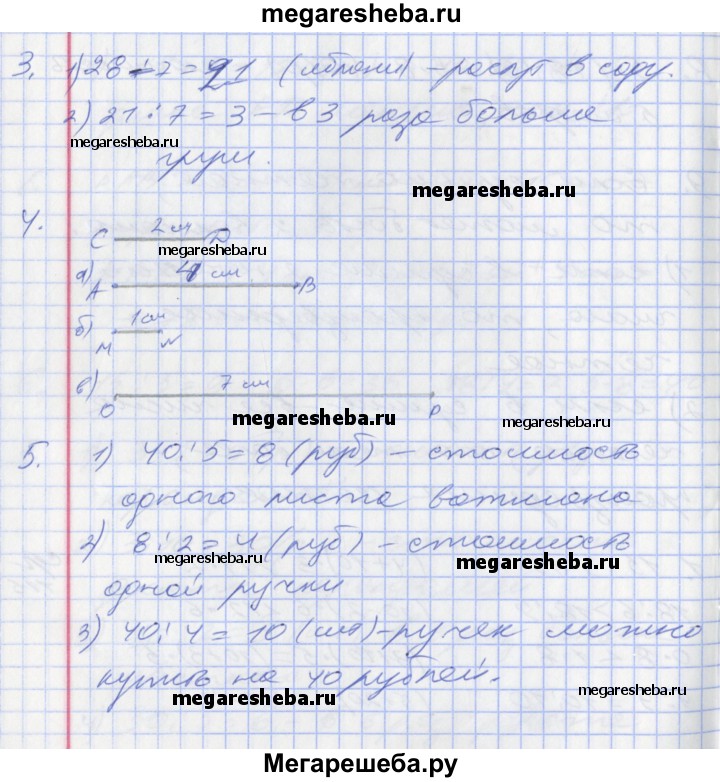 megaresheba.ru
3. 1) 28 - 7 = 21 (яблони) - растут в саду.
2) 21 : 7 = 3 - в 3 раза больше
megaresheba.ru
груш.
megaresheba.ru
4.
C 2 см D
megaresheba.ru
а) A 4 см B
б) M 1 см N
в) O 7 см P
megaresheba.ru
megaresheba.ru
5. 1) 40 : 5 = 8 (руб) - стоимость
одного листа ватмана
2) 8 : 2 = 4 (руб) - стоимость
megaresheba.ru
megaresheba.ru
одной ручки
3) 40 : 4 = 10 (шт) - ручек можно
купить на 40 рублей.
megaresheba.ru
megaresheba.ru
Мегарешеба.ру